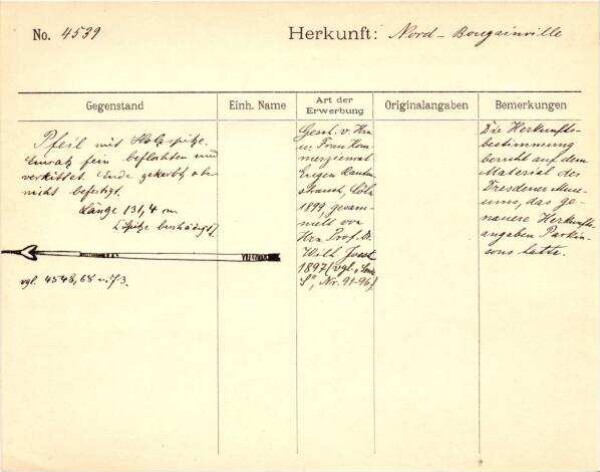 No. 4539
Herkunft: Nord-Bougainville
Gegenstand
Einh. Name
Art der Erwerbung
Originalangaben
Bemerkungen
Pfeil mit Holzspitze.
Einsatz fein beflochten und
verkittet. Ende gekerbt aber
nicht befestigt.
Länge 131,4 cm
[Spitze beschädigt]
vgl. 4548, 68 u. 73.
Gesch. v. Hrn
u. Frau Kom
merzienrat
Eugen Rauten
strauch, Cöln
1899, gesam-
melt von
Hrn Prof. Dr.
Wilh. Joest
1897 (vgl.
Nr. 91-96)
Die Herkunfts-
bestimmung
beruht auf dem
Material des
Dresdener Muse-
ums, das ge-
nauere Herkunfts-
angaben Parkin-
sons hatte.